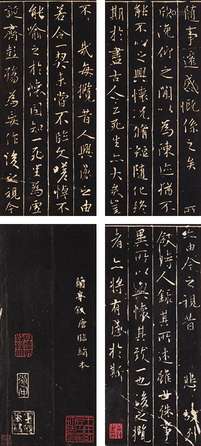 隨事遷感慨係之矣 所
欣俛仰之間以為陳迹猶不
能不以之興懷況脩短隨化終
期於盡古人云死生亦大矣豈
不 哉每攬昔人興感之由
若合一契未嘗不臨文嗟悼不
能喻之於懷固知一死生為虛
誕齊彭殤為妄作後 視今
亦由今之視昔 悲 列
敘時人錄其所述雖世殊事
異所以興懷其致一也後之攬
者亦將有感於斯
蘭亭敘唐臨絹本